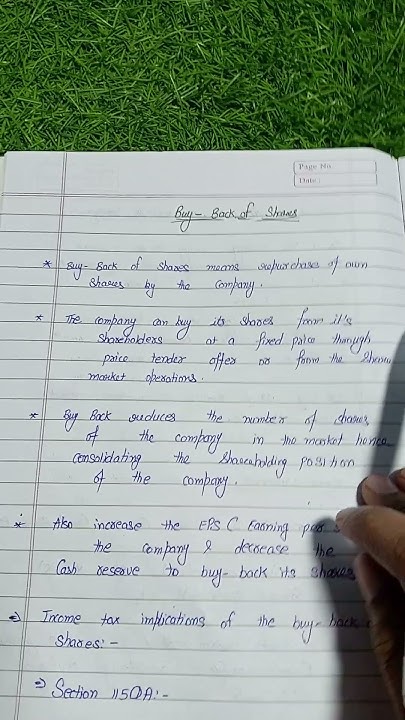 Page No
Date:
Buy-Back of Shares
* Buy-Back of Shares means repurchases of own
Shares by the Company.
* The company can buy its shares from it's
Shareholders at a fixed price through
price tender offer or from the
market operations.
* Buy Back reduces the number of shares
of the company in the market hence
consolidating the Shareholding position
of the company.
* Also increase the EPS ( Earning per
the company & decrease the
Cash reserve to buy-back its shares
⇒ Income tax implications of the buy-back
Shares:-
⇒ Section 115QA:-